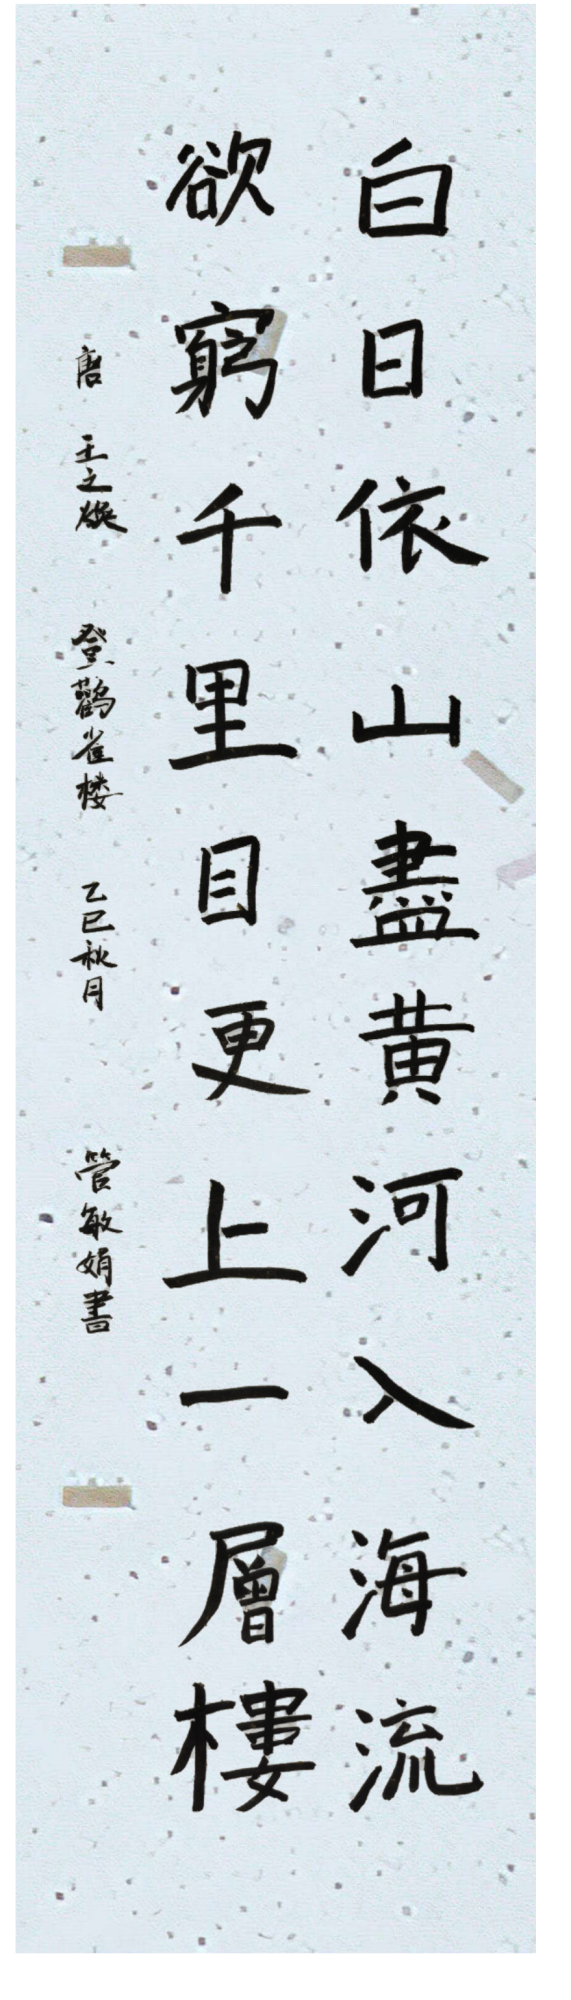 白日依山盡黃河入海流
欲窮千里目更上一層樓
唐 王之渙 登鸛雀楼 乙巳秋月 管敏娟書